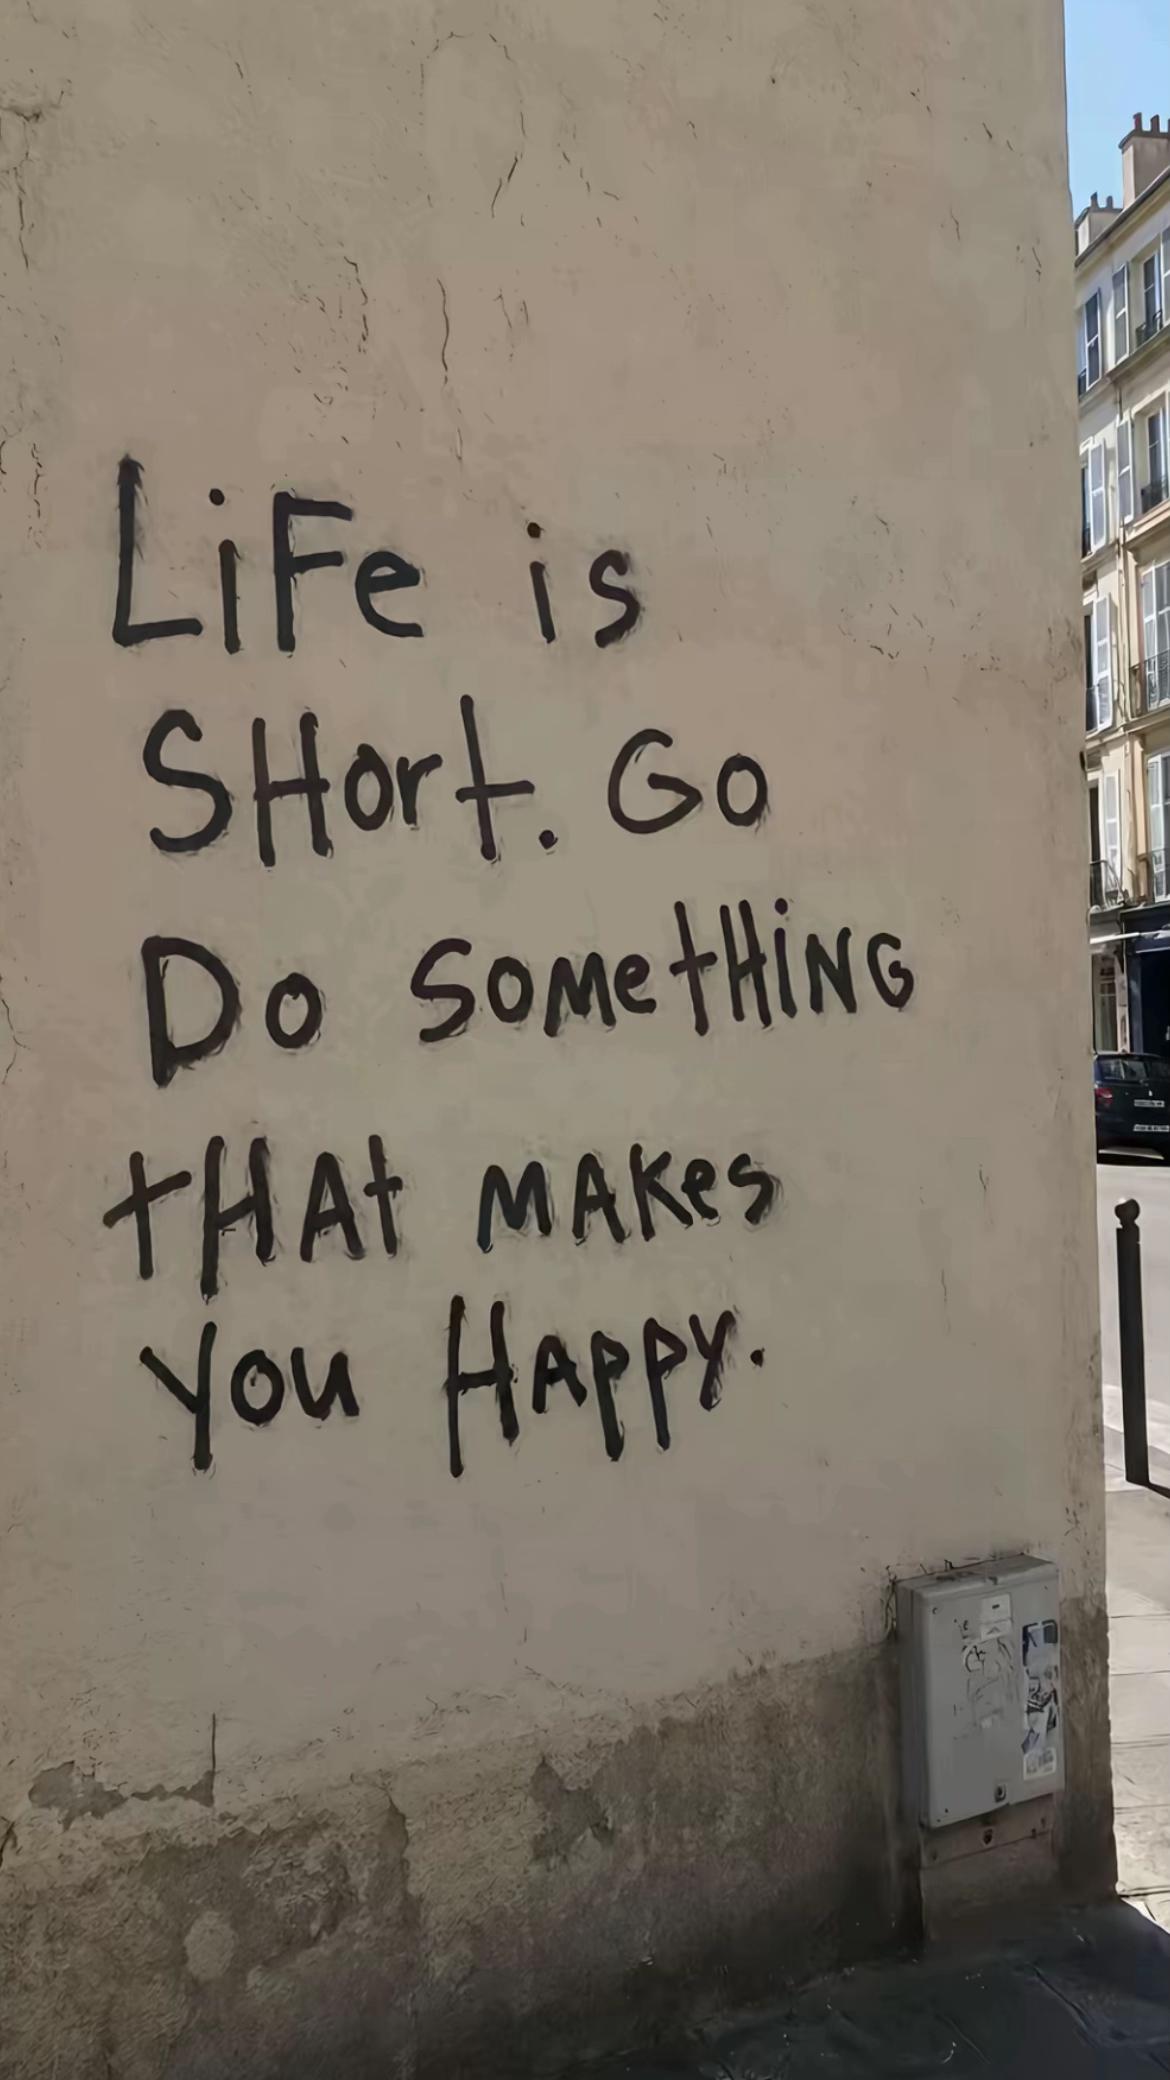 LiFe is
SHort. Go
Do SOMetHiNG
tHAt MAKes
you HAppy.